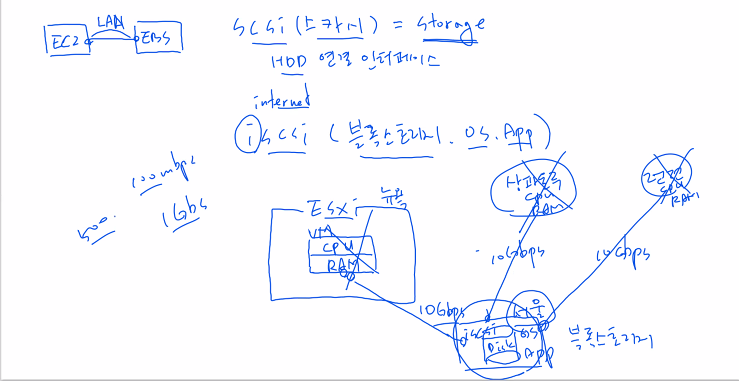 LAN
EC2 EBS
SCSI (스카시) = Storage
HDD 연결 인터페이스
internet
iSCSI (블록스토리지. OS. App)
100mbps
500.
1Gbs
ESXi
뉴욕
VM
CPU
RAM
상파울루
CPU
RAM
런던
CPU
RAM
10Gbps
10Gbps
10Gbps
서울
iscsi
OS
Disk
App
블록스토리지